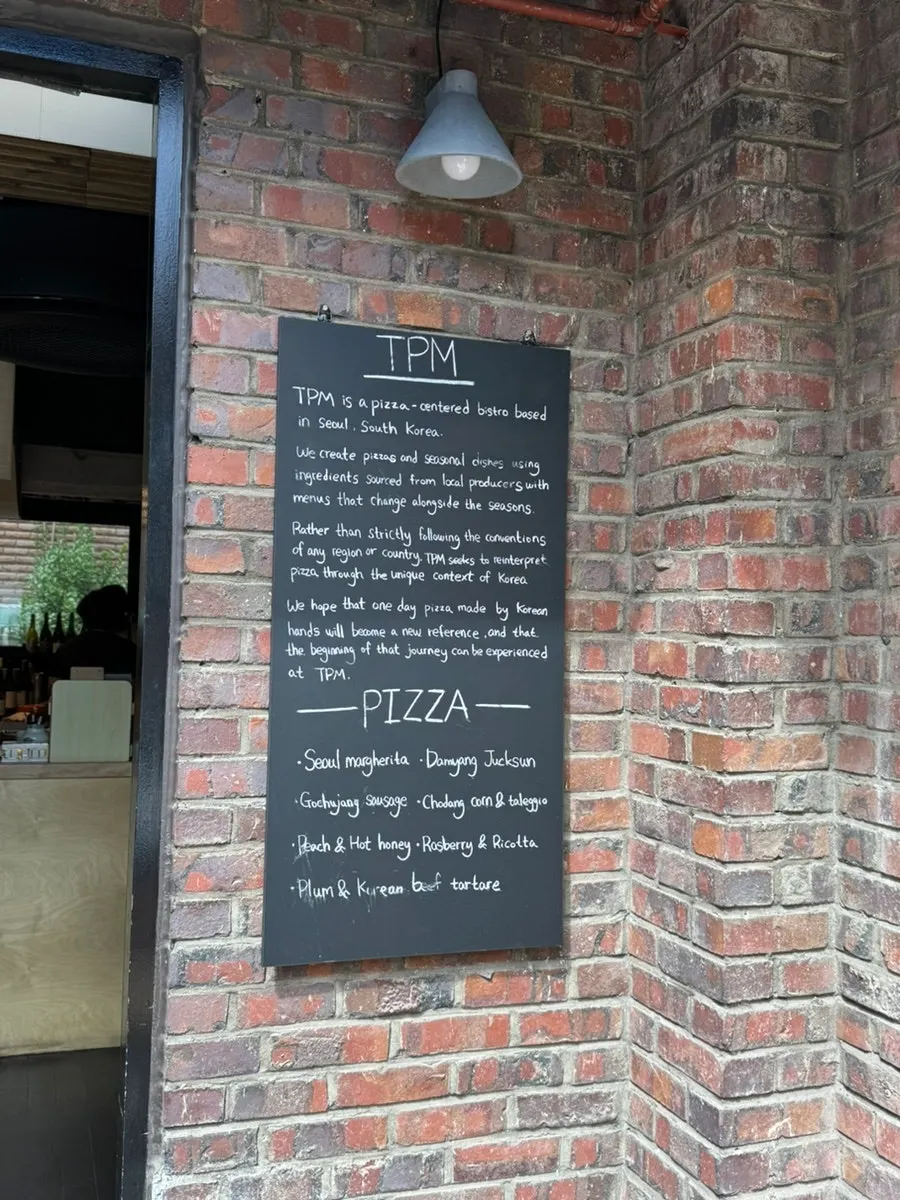 TPM
TPM is a pizza-centered bistro based
in seoul, South Korea.
We create pizzas and seasonal dishes using
ingredients sourced from local producers with
menus that change alongside the seasons.
Rather than strictly following the conventions
of any region or country, TPM seeks to reinterpret
pizza through the unique context of Korea
We hope that one day pizza made by Korean
hands will become a new reference, and that
the beginning of that journey can be experienced
at TPM.
PIZZA
·Seoul margherita ·Damyang Jucksun
·Gochujang sausage ·Chodang corn & taleggio
·Peach & Hot honey ·Rasberry & Ricotta
·Plum & Korean beef tartare